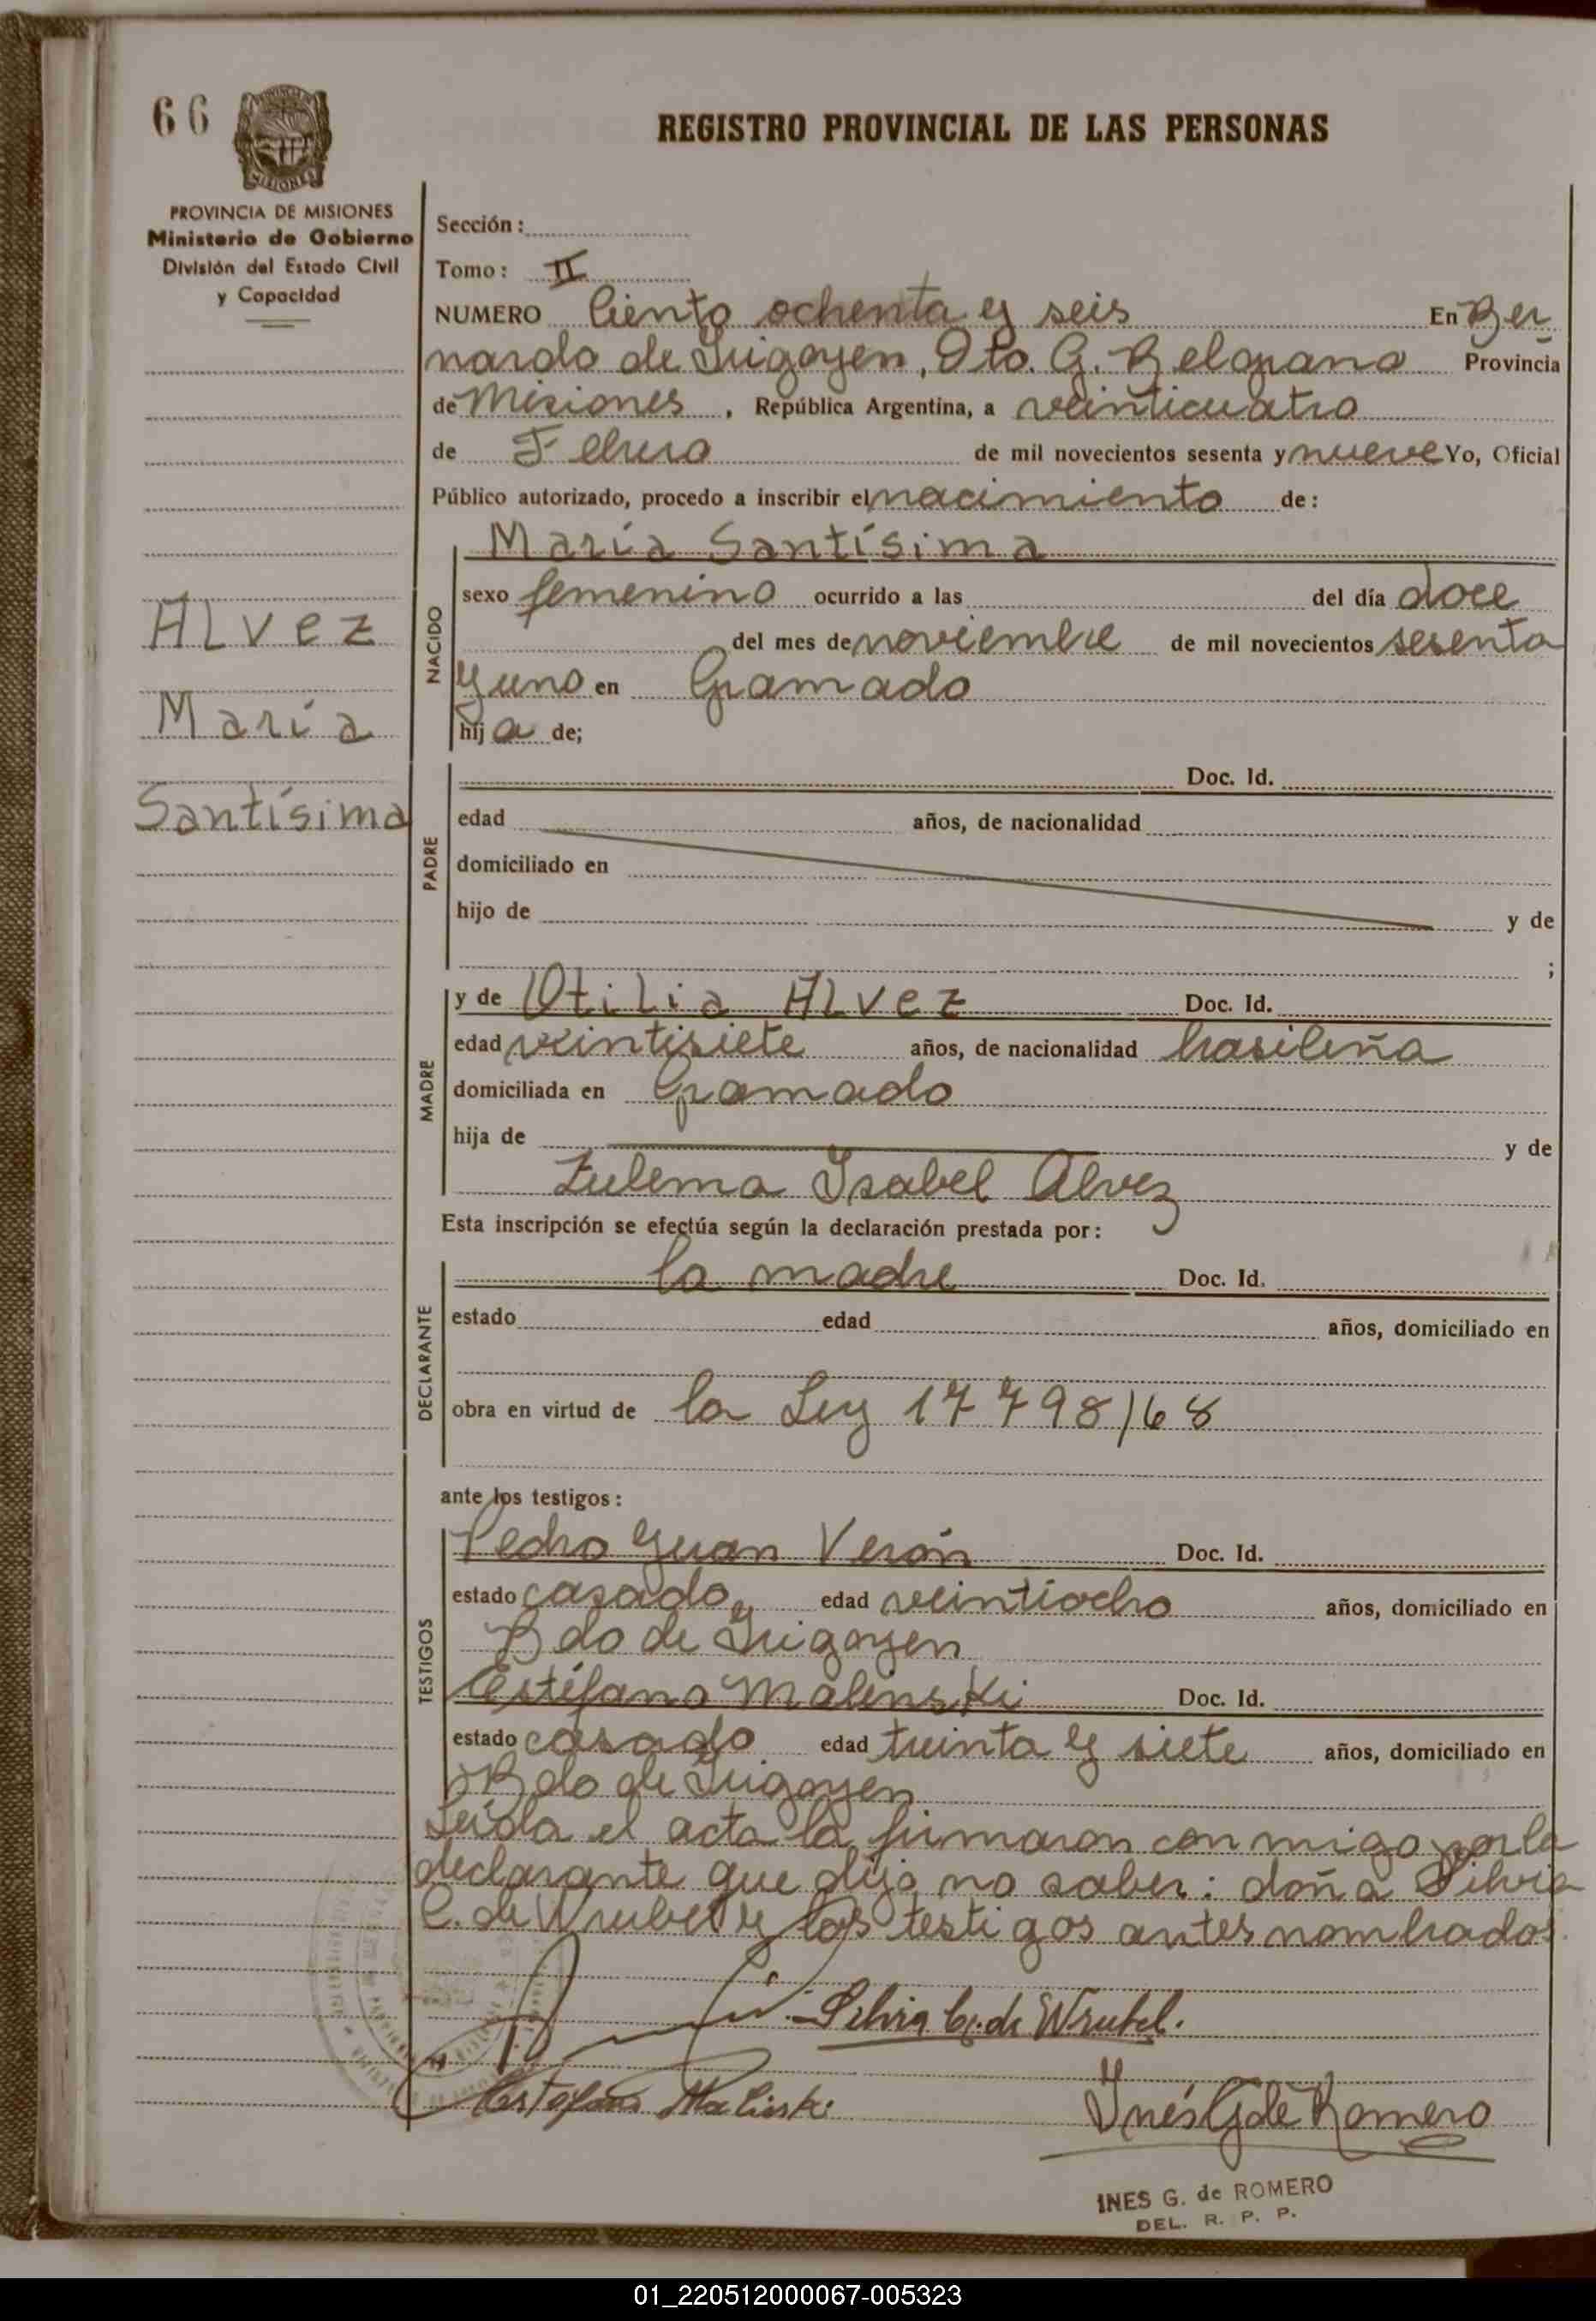 66
REGISTRO PROVINCIAL DE LAS PERSONAS
MISIONES
PROVINCIA DE MISIONES
Ministerio de Gobierno
División del Estado Civil
y Capacidad
Sección:
Tomo: II
NUMERO Ciento ochenta y seis En Ber
nardo de Irigoyen, Dto. G. Belgrano Provincia
de Misiones, República Argentina, a veinticuatro
de Febrero de mil novecientos sesenta y nueve Yo, Oficial
Público autorizado, procedo a inscribir el nacimiento de:
María Santísima
NACIDO
sexo femenino ocurrido a las del día doce
del mes de noviembre de mil novecientos sesenta
y uno en Gramado
hija de;
ALvez
María
Santísima
PADRE
Doc. Id.
edad años, de nacionalidad
domiciliado en
hijo de y de
;
MADRE
y de Otilia ALvez Doc. Id.
edad veintisiete años, de nacionalidad brasileña
domiciliada en Gramado
hija de y de
Zulema Isabel Alvez
Esta inscripción se efectúa según la declaración prestada por:
DECLARANTE
la madre Doc. Id.
estado edad años, domiciliado en
obra en virtud de la Ley 17798/68
ante los testigos:
TESTIGOS
Pedro Juan Verón Doc. Id.
estado casado edad veintiocho años, domiciliado en
Bdo de Irigoyen
Estéfano Malinski Doc. Id.
estado casado edad treinta y siete años, domiciliado en
Bdo de Irigoyen
Leída el acta la firmaron con migo por la
declarante que dijo no saber: doña Silvia
C. de Wrubel y los testigos antes nombrados.
Silvia C. de Wrubel.
Estefano Malinski
Inés G de Romero
INES G. de ROMERO
DEL. R. P. P.
01_220512000067-005323